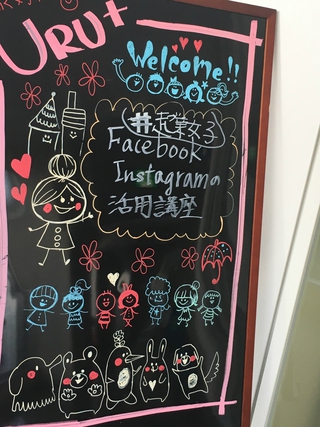 URU+
Welcome!!
#起業女子
Facebook
Instagramの
活用講座